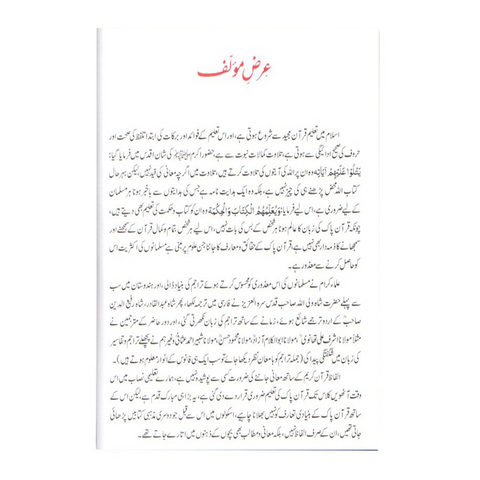 عرضِ مؤلّف
اسلام میں تعلیم قرآن مجید سے شروع ہوتی ہے، اور اس تعلیم کے فوائد اور برکات کی ابتدا تلفظ کی صحت اور
حروف کی صحیح ادائیگی سے ہوتی ہے، تلاوت کمالات نبوت سے ہے، حضور اکرم ﷺ کی شان اقدس میں فرمایا گیا:
يَتْلُوا عَلَيْهِمْ آيَاتِهٖ وہ ان پر اللہ کی آیتوں کی تلاوت کرتے ہیں، تلاوت میں اگرچہ معانی کی قید نہیں، بہرحال
کتاب اللہ محض پڑھنے ہی کی چیز نہیں ہے، بلکہ وہ ایک ہدایت نامہ ہے جس کی ہدایتوں سے باخبر ہونا ہر مسلمان
کے لیے ضروری ہے، اس لیے فرمایا وَيُعَلِّمُهُمُ الْكِتَابَ وَالْحِكْمَةَ وہ ان کو کتاب و حکمت کی تعلیم بھی دیتے ہیں،
چونکہ قرآن پاک کی زبان کا عالم ہونا ہر شخص کے بس کی بات نہیں، اس لیے ہر شخص بتمام و کمال قرآن کے سمجھنے اور
سمجھانے کا ذمہ دار بھی نہیں ہے، قرآن پاک کے حقائق و معارف کا جاننا جن علوم پر مبنی ہے مسلمانوں کی اکثریت اس
کو حاصل کرنے سے معذور ہے۔
علماء کرام نے مسلمانوں کی اس معذوری کو محسوس کرتے ہوئے تراجم کی بنیاد ڈالی، اور ہندوستان میں سب
سے پہلے حضرت شاہ ولی اللہ صاحب قدس سرہ العزیز نے فارسی میں ترجمہ لکھا، پھر شاہ عبدالقادر، شاہ رفیع الدین
صاحبؒ کے اردو ترجمے شائع ہوئے، زمانے کے ساتھ تراجم کی زبان نکھرتی گئی، اور دور حاضر کے مترجمین نے
مثلاً مولانا اشرف علی تھانویؒ، مولانا ابوالکلام آزادؒ، مولانا محمود حسنؒ، مولانا شبیر احمد عثمانیؒ وغیرہم نے پچھلے تراجم و تفاسیر
کی زبان میں شگفتگی پیدا کی (جملہ تراجم کو بامعان نظر دیکھا جائے تو سب ایک ہی فانوس کے انوار معلوم ہوتے ہیں)۔
الفاظ قرآن کریم کے ساتھ معانی جاننے کی ضرورت کسی سے پوشیدہ نہیں ہے، ہمارے تعلیمی نصاب میں اس
وقت آٹھویں کلاس تک قرآن پاک کی تعلیم ضروری قرار دے دی گئی ہے، یہ بڑا ہی مبارک قدم ہے، لیکن اس کے
ساتھ قرآن پاک کے بنیادی تعارف کو نہیں بھلانا چاہیے، اسکولوں میں اس سے قبل جو دوسری مذہبی کتابیں پڑھائی
جاتی تھیں، ان کے صرف الفاظ نہیں، بلکہ معانی و مطالب بھی بچوں کے ذہنوں میں اتارے جاتے تھے۔